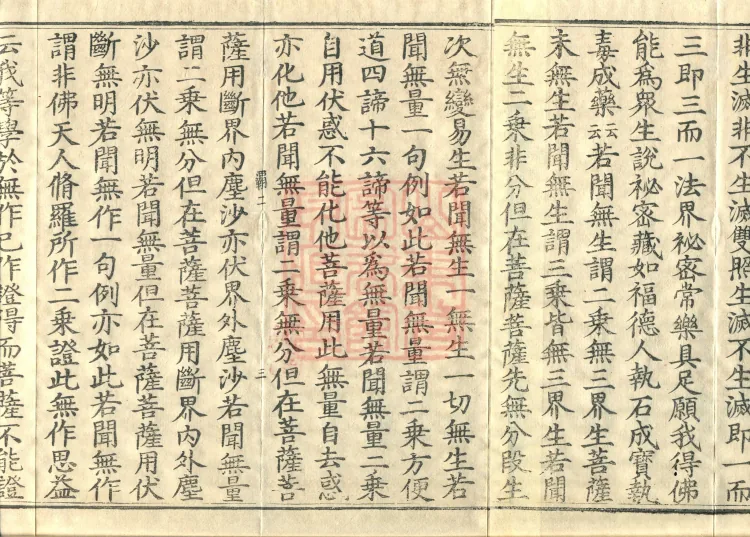 非生滅非不生滅雙照生滅不生滅即一而
三即三而一法界祕密常樂具足願我得佛
能爲衆生說祕密藏如福德人執石成寶執
毒成藥云云若聞無生謂二乗無三界生菩薩
未無生若聞無生謂三乗皆無三界生若聞
無生二乗非分但在菩薩菩薩先無分段生
次無變易生若聞無生一無生一切無生若
聞無量一句例如此若聞無量謂二乗方便
道四諦十六諦等以爲無量若聞無量二乗
自用伏惑不能化他菩薩用此無量自去惑
亦化他若聞無量謂二乗無分但在菩薩菩
霸二
三
薩用斷界內塵沙亦伏界外塵沙若聞無量
謂二乗無分但在菩薩菩薩用斷界內外塵
沙亦伏無明若聞無量但在菩薩菩薩用伏
斷無明若聞無作一句例亦如此若聞無作
謂非佛天人脩羅所作二乗證此無作思益
云我等學於無作已作證得而菩薩不能證